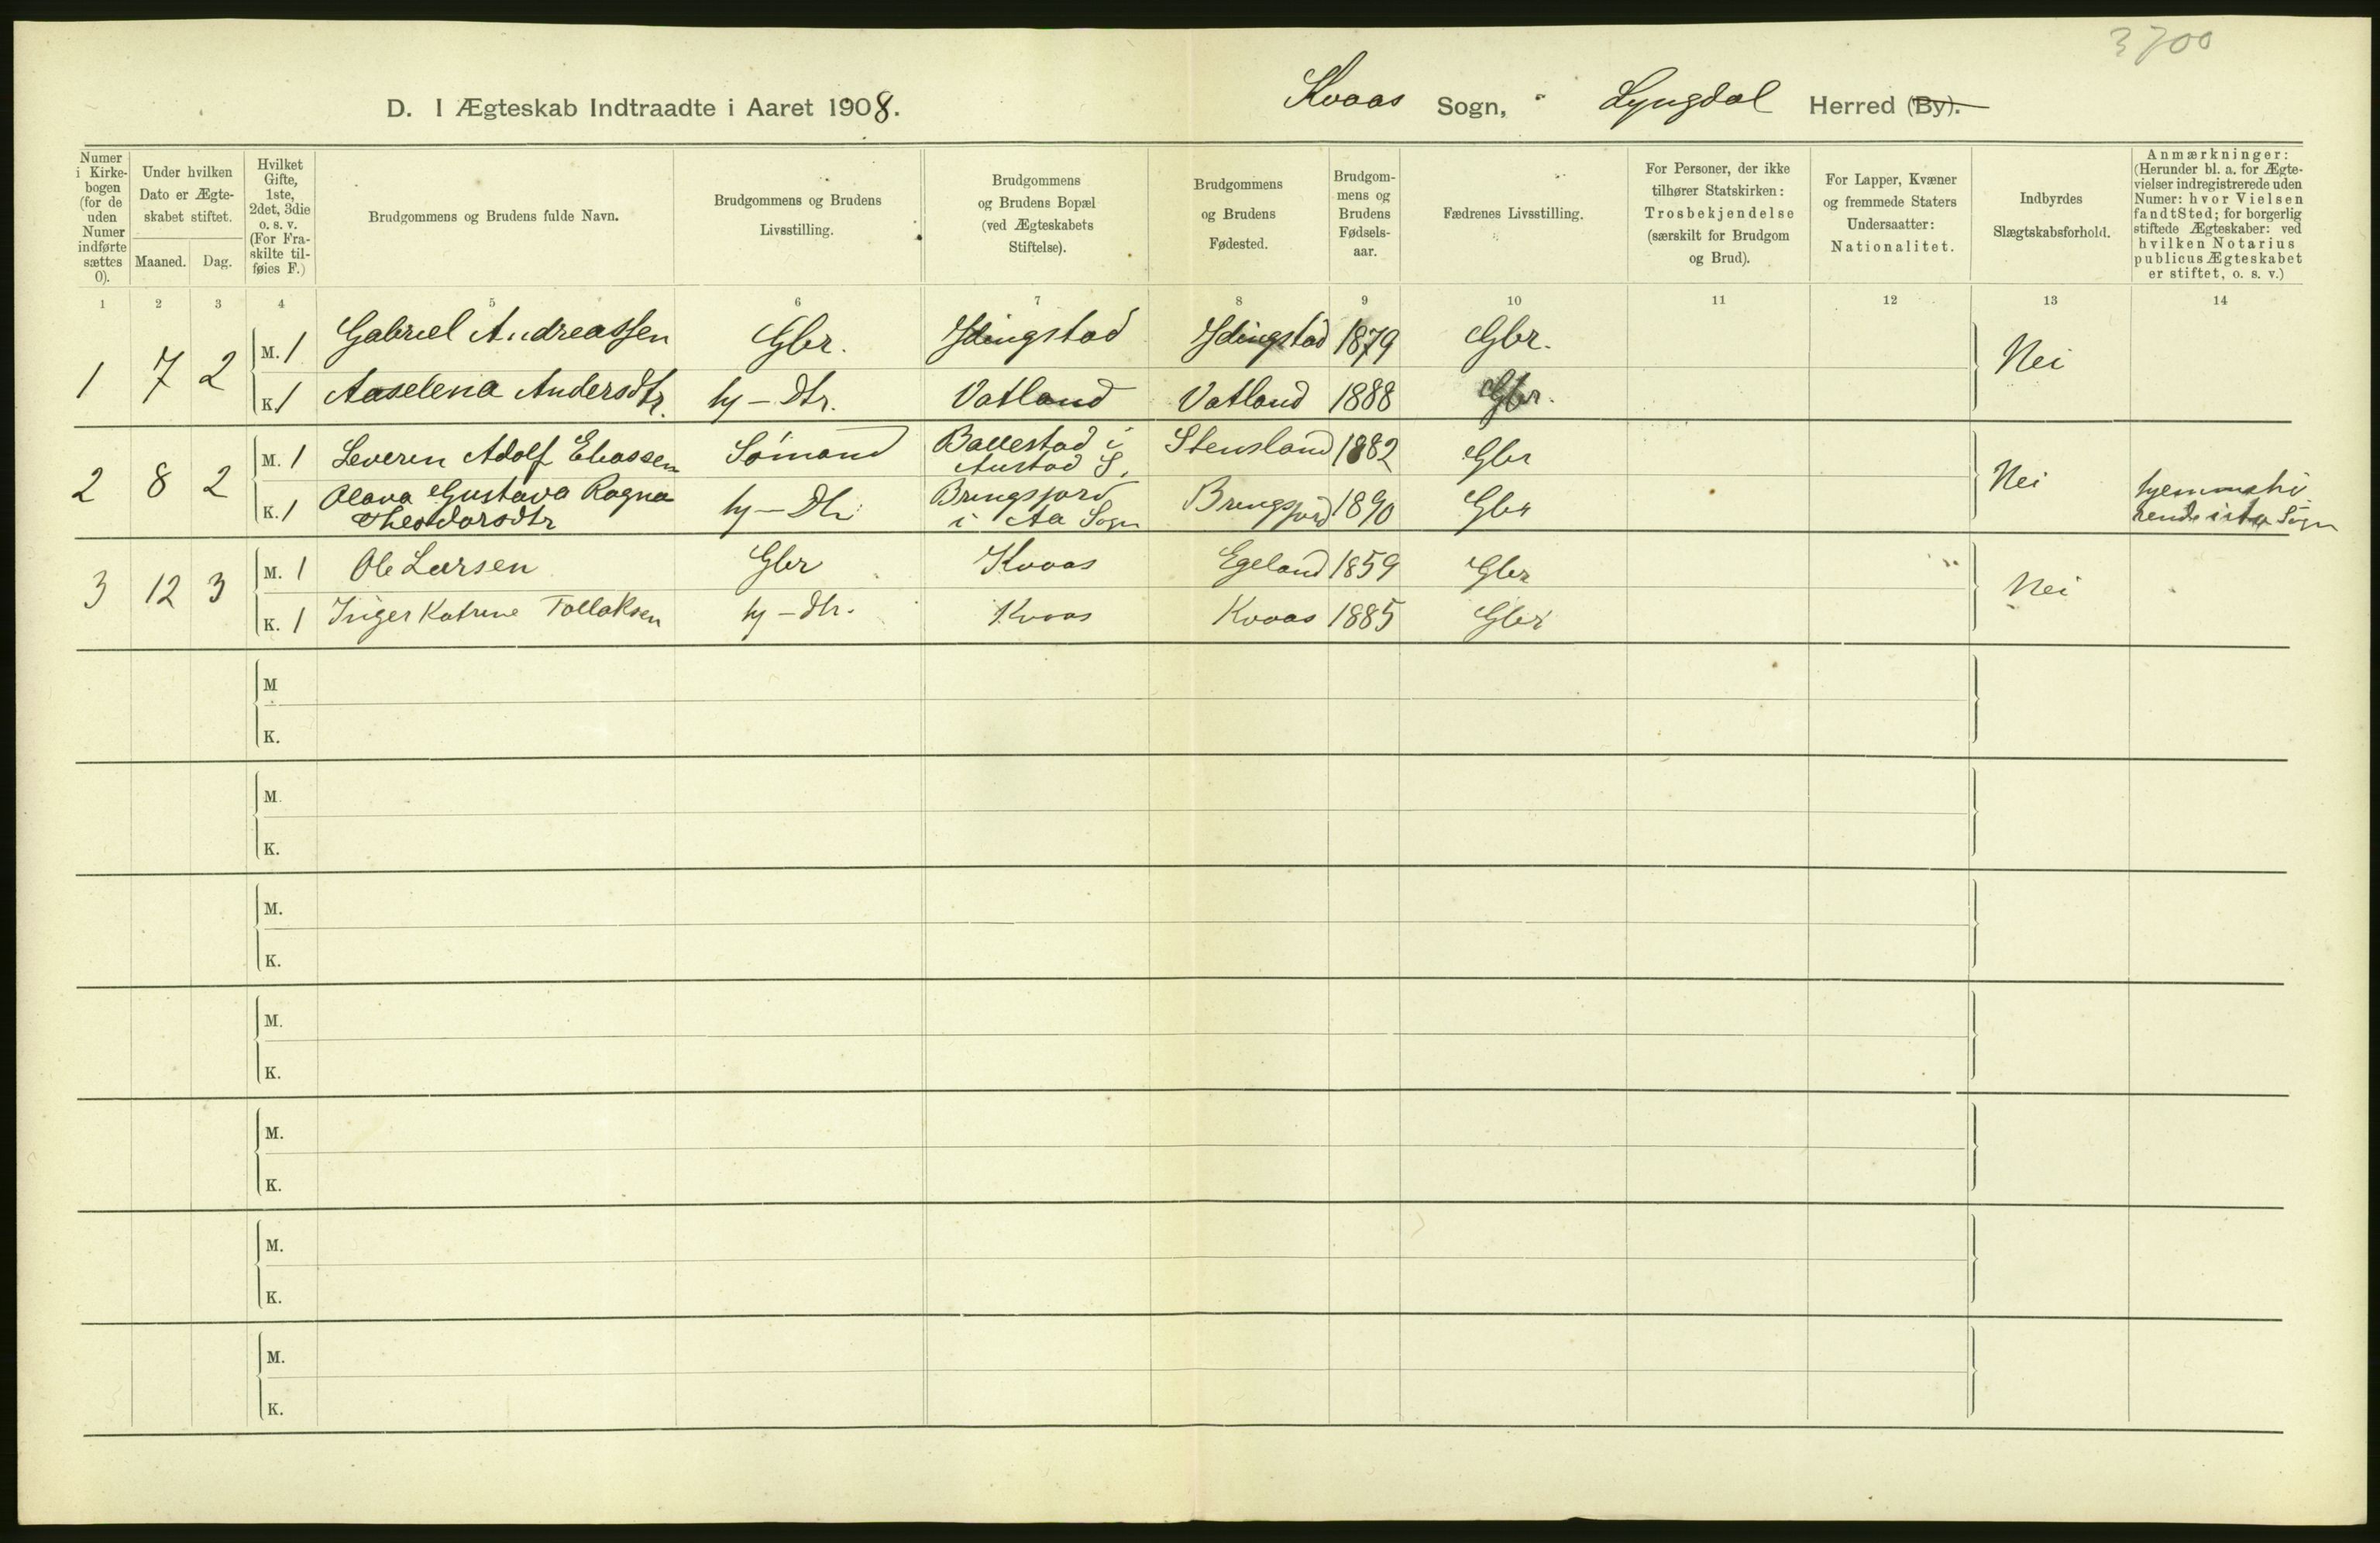 3700
D. I Ægteskab Indtraadte i Aaret 1908.
Kvaas Sogn, Lyngdal Herred (By).
Numer i Kirkebogen (for de uden Numer indførte sættes 0).
Under hvilken Dato er Ægteskabet stiftet.
Maaned. Dag.
Hvilket Gifte, 1ste, 2det, 3die o. s. v. (For Fraskilte tilføies F.)
Brudgommens og Brudens fulde Navn.
Brudgommens og Brudens Livsstilling.
Brudgommens og Brudens Bopæl (ved Ægteskabets Stiftelse).
Brudgommens og Brudens Fødested.
Brudgommens og Brudens Fødselsaar.
Fædrenes Livsstilling.
For Personer, der ikke tilhører Statskirken: Trosbekjendelse (særskilt for Brudgom og Brud).
For Lapper, Kvæner og fremmede Staters Undersaatter: Nationalitet.
Indbyrdes Slægtskabsforhold.
Anmærkninger: (Herunder bl. a. for Ægtevielser indregistrerede uden Numer: hvor Vielsen fandt Sted; for borgerlig stiftede Ægteskaber: ved hvilken Notarius publicus Ægteskabet er stiftet, o. s. v.)
1 2 3 4 5 6 7 8 9 10 11 12 13 14
1 7 2 M. 1 Gabriel Andreassen Gbr. Ydingstad Ydingstad 1879 Gbr. Nei
K. 1 Aaselena Andersdtr. hj - Dtr. Vatland Vatland 1888 Gbr.
2 8 2 M. 1 Severin Adolf Eliassen Sømand Ballestad i Austad S. Stensland 1882 Gbr Nei
K. 1 Olava Gustava Ragna Theodorsdtr hj - Dtr. Bringsjord i Aa Sogn Bringsjord 1890 Gbr hjemmehørende i Aa Sogn
3 12 3 M. 1 Ole Larsen Gbr Kvaas Egeland 1859 Gbr Nei
K. 1 Inger Katrine Tollaksen hj - Dtr. Kvaas Kvaas 1885 Gbr
M
K.
M.
K.
M.
K.
M.
K.
M.
K.
M.
K.
M.
K.